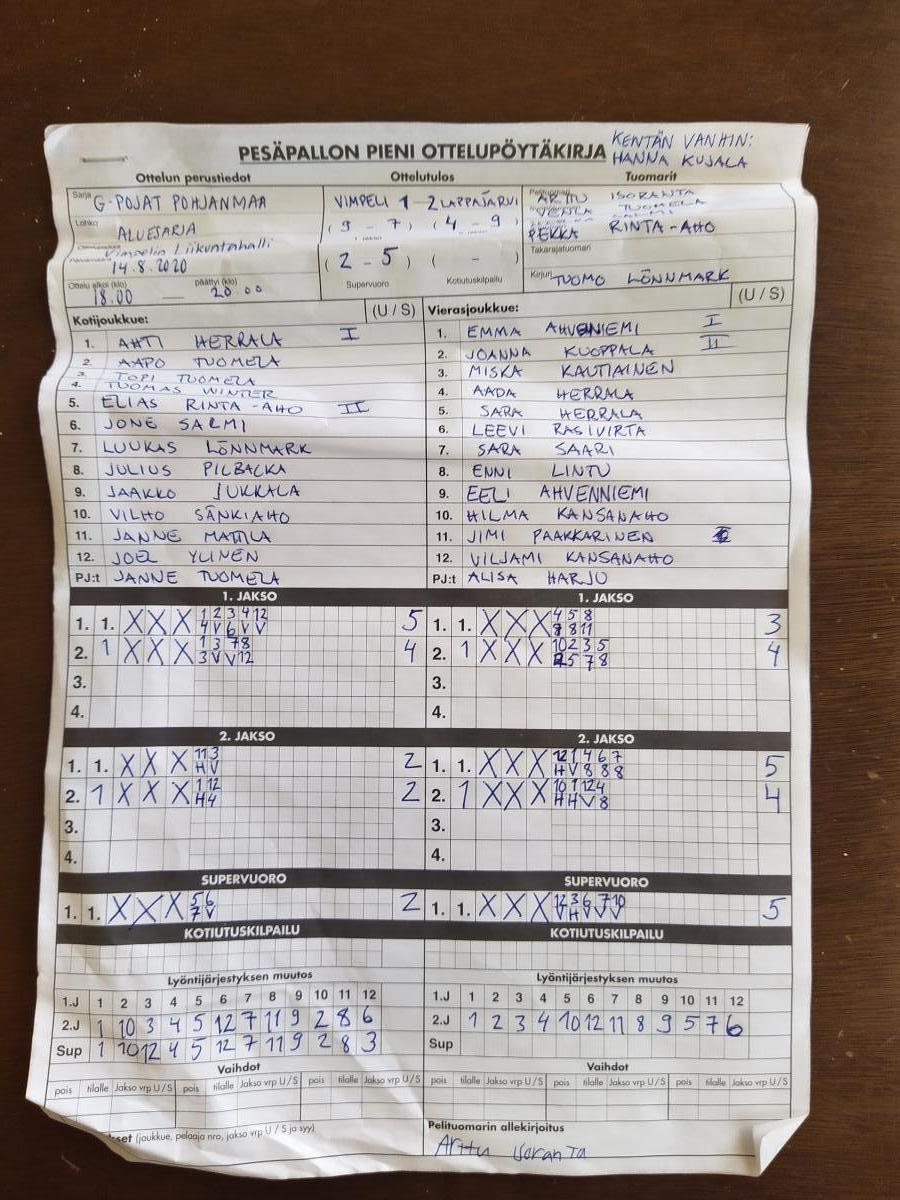 PESÄPALLON PIENI OTTELUPÖYTÄKIRJA
KENTÄN VANHIN:
HANNA KUJALA
Ottelun perustiedot Ottelutulos Tuomarit
Sarja G-POJAT POHJANMAA
VIMPELI 1 - 2 LAPPAJÄRVI
(9 - 7) (4 - 9)
ARTTU ISORANTA
VENLA TUOMELA
Lohko ALUESARJA
PEKKA RINTA-AHO
Vimpelin Liikuntahalli
14.8.2020
(2 - 5) ( - )
Takarajatuomari
Ottelu alkoi (klo) päättyi (klo)
18.00 — 20.00
Supervuoro Kotiutuskilpailu
Kirjuri TUOMO LÖNNMARK
Kotijoukkue: (U / S) Vierasjoukkue: (U / S)
1. AHTI HERRALA I
2. AAPO TUOMELA
3. TOPI TUOMELA
4. TUOMAS WINTER
5. ELIAS RINTA-AHO II
6. JONE SALMI
7. LUUKAS LÖNNMARK
8. JULIUS PILBACKA
9. JAAKKO JUKKALA
10. VILHO SÄNKIAHO
11. JANNE MATTILA
12. JOEL YLINEN
PJ:t JANNE TUOMELA
1. EMMA AHVENNIEMI I
2. JOANNA KUOPPALA II
3. MISKA KAUTIAINEN
4. AADA HERRALA
5. SARA HERRALA
6. LEEVI RASIVIRTA
7. SARA SAARI
8. ENNI LINTU
9. EELI AHVENNIEMI
10. HILMA KANSANAHO
11. JIMI PAAKKARINEN
12. VILJAMI KANSANAHO
PJ:t ALISA HARJU
1. JAKSO 1. JAKSO
1. 1. X X X 1 2 3 4 12 5
4 V 6 V V
2. 1 X X X 1 3 7 8 4
3 V V 12
3.
4.
1. 1. X X X 4 5 8 3
8 8 11
2. 1 X X X 10 2 3 5 4
2 5 7 8
3.
4.
2. JAKSO 2. JAKSO
1. 1. X X X 11 3 2
H V
2. 1 X X X 1 12 2
H 4
3.
4.
1. 1. X X X 12 1 4 6 7 5
H V 8 8 8
2. 1 X X X 10 1 12 4 4
H H V 8
3.
4.
SUPERVUORO SUPERVUORO
1. 1. X X X 5 6 2
7 V
1. 1. X X X 12 3 6 7 10 5
V H V V V
KOTIUTUSKILPAILU KOTIUTUSKILPAILU
Lyöntijärjestyksen muutos Lyöntijärjestyksen muutos
1.J 1 2 3 4 5 6 7 8 9 10 11 12
2.J 1 10 3 4 5 12 7 11 9 2 8 6
Sup 1 10 12 4 5 12 7 11 9 2 8 3
1.J 1 2 3 4 5 6 7 8 9 10 11 12
2.J 1 2 3 4 10 12 11 8 9 5 7 6
Sup
Vaihdot Vaihdot
pois tilalle Jakso vrp U / S pois tilalle Jakso vrp U / S pois tilalle Jakso vrp U / S
pois tilalle Jakso vrp U / S pois tilalle Jakso vrp U / S pois tilalle Jakso vrp U / S
(joukkue, pelaaja nro, jakso vrp U / S ja syy)
Pelituomarin allekirjoitus
Arttu Isoranta